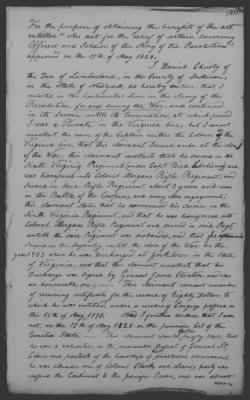 For the purpose of obtaining the benefits of the act
entitled "An act for the relief of certain surviving
Officers and Soldiers of the Army of the Revolution"
approved on the 15th of May 1828,
I Daniel Christy of
the Town of Lumberland, in the County of Sullivan,
in the State of New York do hereby declare, that I
enlisted in the Continental line in the Army of the
Revolution, for and during the War, and continued
in its service until its termination, at which period
I was a Private in the Virginia line, that I cannot
recollect the name of the Captain neither the Colonel of the
Virginia line, that this claimant served under at the close
of the War, this claimant recollects that he served in the
Sixth Virginia Regiment under Capt and
was transferred into Colonel Morgans Rifle Regiment, and
served in said Rifle Regiment about 3 years and was
in the Battle of the Cowpens, and many other engagements,
this claimant states that he commenced his service in the
Sixth Virginia Regiment, and that he was transferred into
Colonel Morgans Rifle Regiment and served in said Regt
until the said Regiment was disbanded, and that he afterwards
served in the Infantry until the close of the War in the
year 1783 when he was discharged at in the State
of Virginia, and that this claimant recollects that his
discharge was signed by General and was
an honourable one, This claimant cannot remember
of receiving certificate for the reward of Eighty Dollars to
which he was entitled under a resolve of Congress passed on
the 15th of May 1778. And I further declare that I was
not, on the 15th of May 1828 on the pension list of the
United States. This claimant would further state, that
he was a volunteer in the memorable defeat of General St
Clair and partook of the hardships of
he was likewise one of Colonel party was
across the Continent to the pacific Ocean, and was